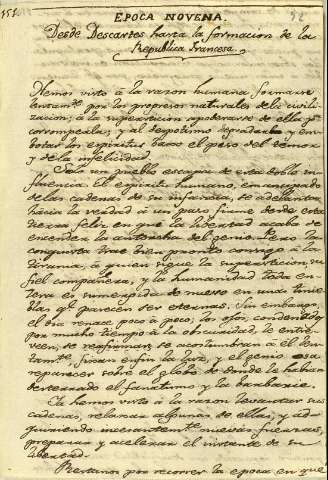 151.
52
EPOCA NOVENA.
Desde Descartes hasta la formacion de la
Republica francesa.
Hemos visto à la razon humana formarse
lentamte. por los progresos naturales de la civili-
zacion; à la supersticion apoderarse de ella pa.
corromperla; y al despotismo degradar y em-
botar los espiritus bajo el peso del temor
y de la infelicidad.
Solo un pueblo escapa de esta doble in-
fluencia. El espiritu humano, emancipado
de las cadenas de su infancia, se adelanta
hacia la verdad à un paso firme desde esta
tierra feliz en que la libertad acaba de
encender la antorcha del genio; pero la
conquista trae bien pronto consigo à la
tirania, à quien sigue la supersticion su
fiel compañera, y la humanidad toda en-
tera es sumergida de nuevo en unas tinie-
blas qe. parecen ser eternas. Sin embargo,
el dia renace poco à poco; los ojos, condenados
por mucho tiempo à la obscuridad, le entre-
veen, se reaniman, se acostumbran à el len-
tamte., fixan enfin la luz, y el genio osa
reparecer sobre el globo de donde la habian
desterrado el fanatismo y la barbarie.
Ya hemos visto à la razon levantar sus
cadenas, relaxar algunas de ellas, y ad-
quiriendo incesantemte. nuevas fuerzas,
preparar y acelerar el instante de su
libertad.
Restanos por recorrer la epoca en que